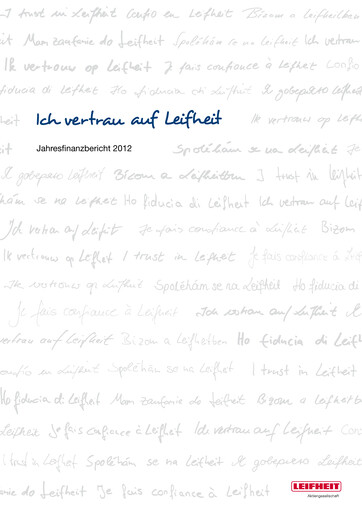 I trust in Leifheit Confío en Leifheit Bizom a leifheitben
it Mam zaufanie do Leifheit Spoléhám se na Leifheit Ich vertrau
Ik vertrouw op Leifheit Je fais confiance à Leifheit Confío
fiducia di Leifheit Ho fiducia di Leifheit Я доверяю Leifheit
Ich vertrau auf Leifheit Ik vertrouw op Leifheit
it
Jahresfinanzbericht 2012 Spoléhám se na Leifheit Je
Я доверяю Leifheit Bízom a Leifheitban I trust in Leifheit
hám se na Leifheit Ho fiducia di Leifheit Ich vertrau auf Leif
Ich votrau auf Leifheit Je fais confiance à Leifheit Bizom
Ik vertrouw op Leifheit I trust in Leifheit Je fais confiance à Leif
Ik vertrouw op Leifheit Spoléhám se na Leifheit Ho fiducia di
Je fais confiance à Leifheit Ich votrau auf Leifheit Я
vertrau auf Leifheit Bizom a Leifhetben Ho fiducia di Leif
onfío en Leifheit Spoléhám so na Leifheit I trust in Leifheit
Ho fiducia di Leifheit Mam zaufanie do Leifheit Bizom a Leifhetb
Leifheit Je fais confiance à Leifheit Ich vertrau auf Leifheit Con
I trust in Leifheit Spoléhám se na Leifheit Я доверяю Leifheit
anie do Leifheit Je fais confiance à Leifheit
LEIFHEIT
Aktiengesellschaft